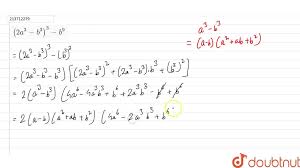 213712239
(2a³ - b³)³ - b⁹
= (2a³ - b³)³ - (b³)³
= (2a³ - b³ - b³) [(2a³ - b³)² + (2a³ - b³)·b³ + (b³)²]
= 2(a³ - b³) (4a⁶ - 4a³b³ + b⁶ + 2a³b³ - b⁶ + b⁶
= 2(a-b)(a²+ab+b²) (4a⁶ - 2a³b³ + b⁶
a³ - b³
= (a-b)(a²+ab+b²)
doubtnut